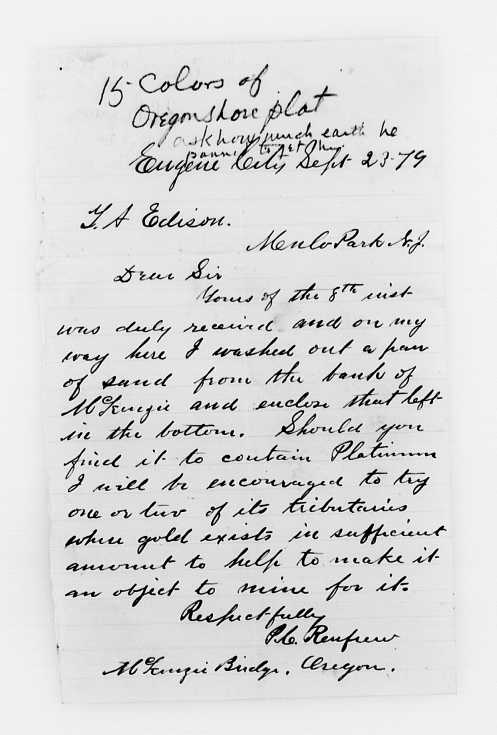 15 Colors of
Oregon shore plat
ask how much earth he
panned to get this
Eugene City Sept 23-79
T. A Edison.
Menlo Park N.J.
Dear Sir
Yours of the 8th inst
was duly received and on my
way here I washed out a pan
of sand from the bank of
McKenzie and enclose that left
in the bottom. Should you
find it to contain Platinum
I will be encouraged to try
one or two of its tributaries
where gold exists in sufficient
amount to help to make it
an object to mine for it.
Respectfully
P.C. Renfrew
McKenzie Bridge, Oregon.